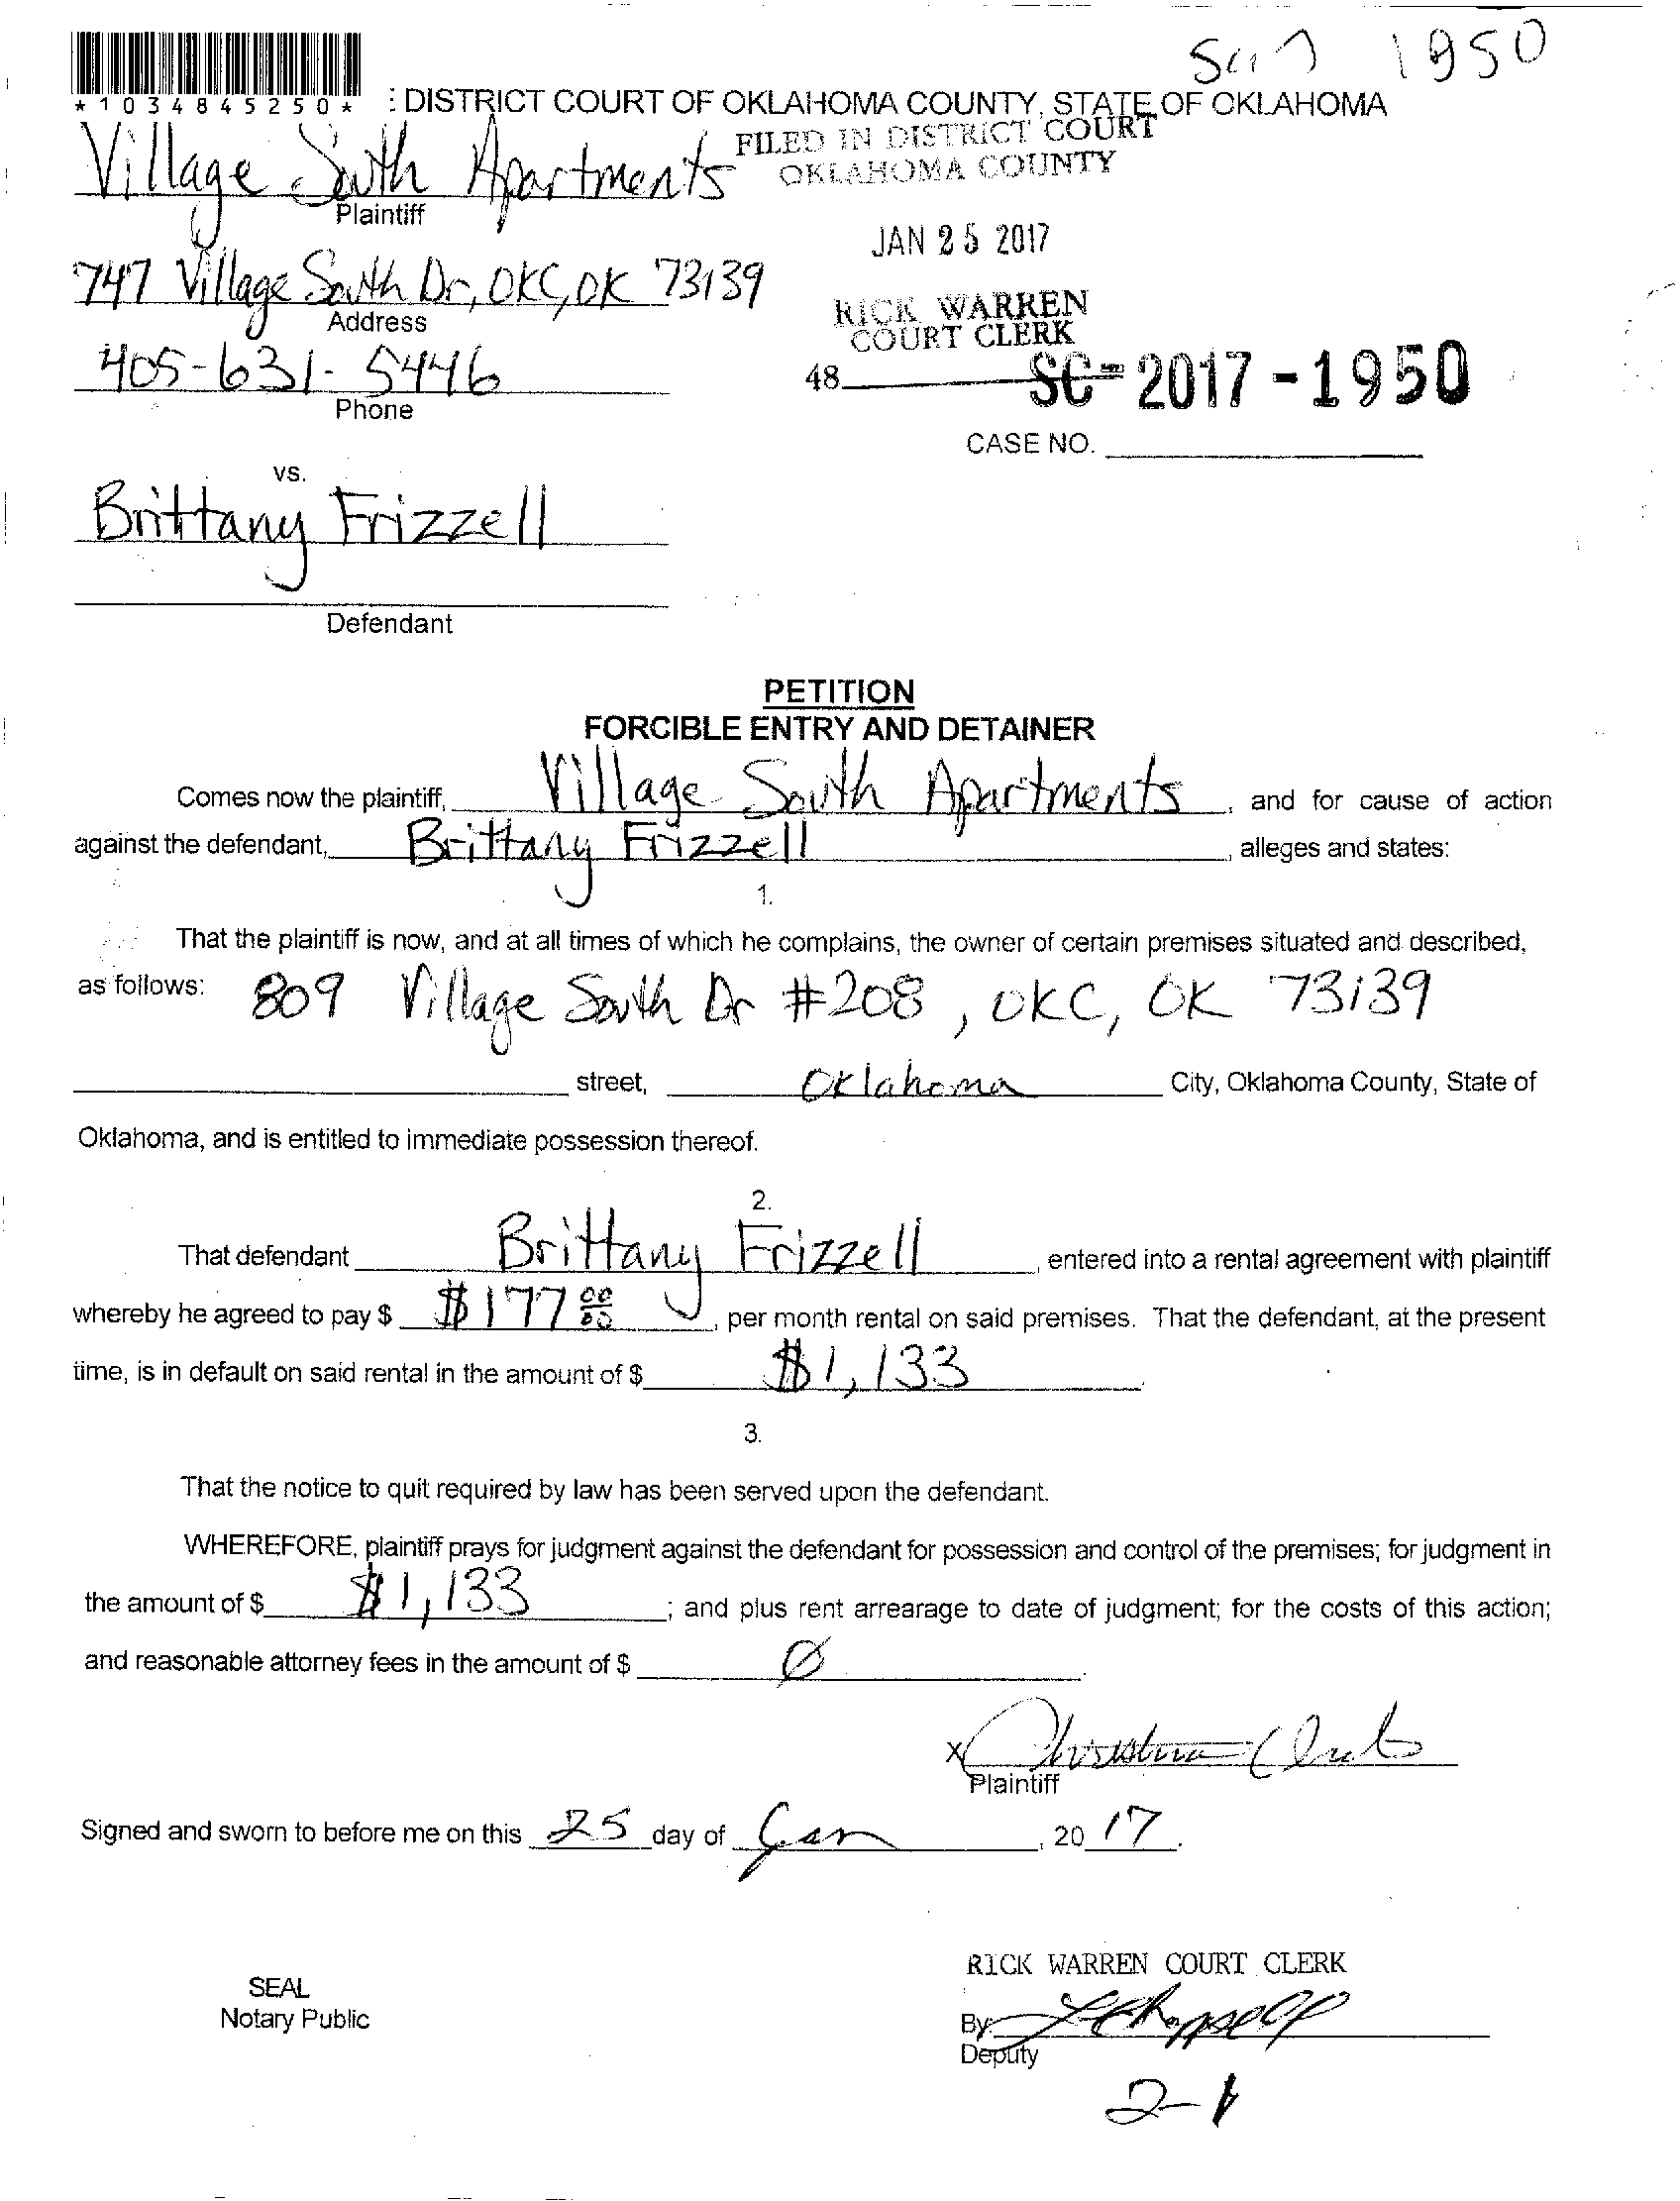 1950
*1034845250*
: DISTRICT COURT OF OKLAHOMA COUNTY, STATE OF OKLAHOMA
Village South Apartments
Plaintiff
FILED IN DISTRICT COURT
OKLAHOMA COUNTY
JAN 25 2017
747 Village South Dr, OKC, OK 73139
Address
RICK WARREN
COURT CLERK
405-631-5446
Phone
48
SC-2017-1950
CASE NO.
vs.
Brittany Frizzell
Defendant
PETITION
FORCIBLE ENTRY AND DETAINER
Comes now the plaintiff, Village South Apartments, and for cause of action
against the defendant, Brittany Frizzell, alleges and states:
1.
That the plaintiff is now, and at all times of which he complains, the owner of certain premises situated and described,
as follows: 809 Village South Dr #208, OKC, OK 73139
street, Oklahoma City, Oklahoma County, State of
Oklahoma, and is entitled to immediate possession thereof.
2.
That defendant Brittany Frizzell, entered into a rental agreement with plaintiff
whereby he agreed to pay $ $177 00/00, per month rental on said premises. That the defendant, at the present
time, is in default on said rental in the amount of $ $1,133.
3.
That the notice to quit required by law has been served upon the defendant.
WHEREFORE, plaintiff prays for judgment against the defendant for possession and control of the premises; for judgment in
the amount of $ $1,133; and plus rent arrearage to date of judgment; for the costs of this action;
and reasonable attorney fees in the amount of $ Ø.
x Christina
Plaintiff
Signed and sworn to before me on this 25 day of Jan, 2017.
RICK WARREN COURT CLERK
SEAL
Notary Public
By:
Deputy
2-1